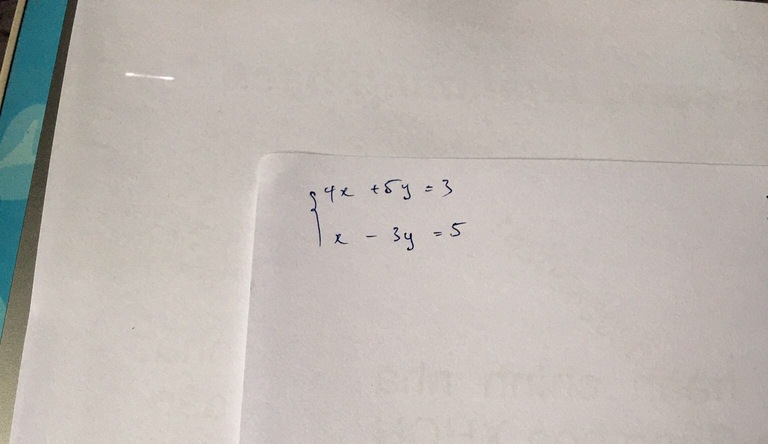 4x + 5y = 3
x - 3y = 5